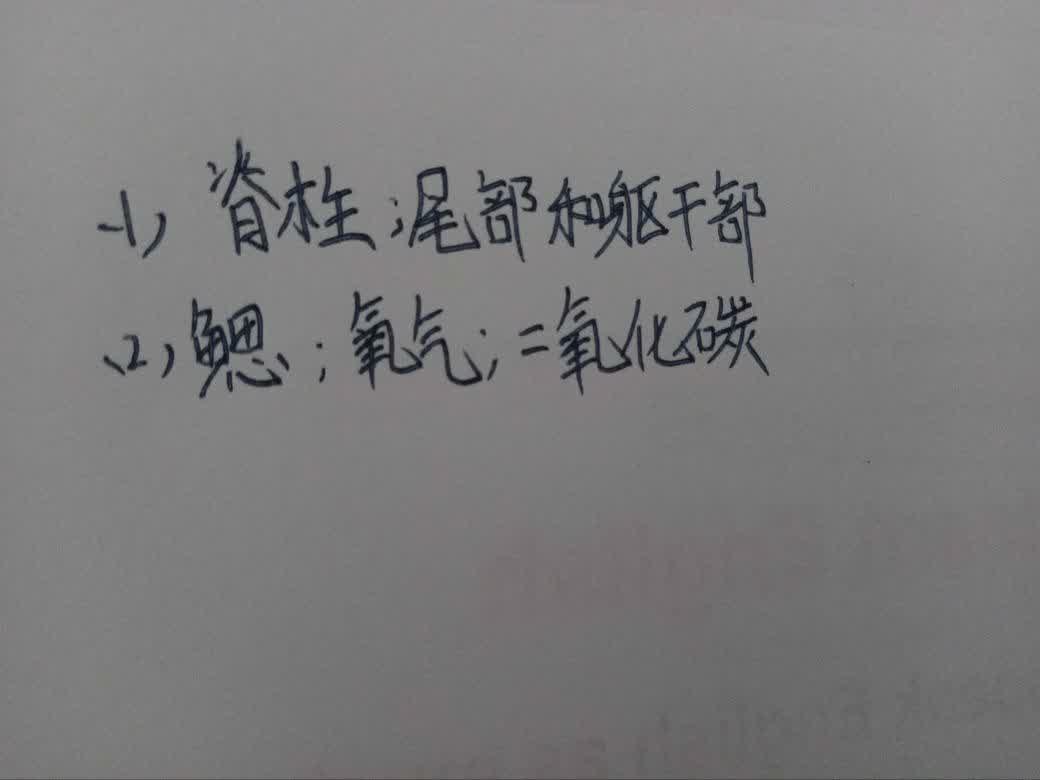 (1) 脊柱;尾部和躯干部
(2) 鳃;氧气;二氧化碳